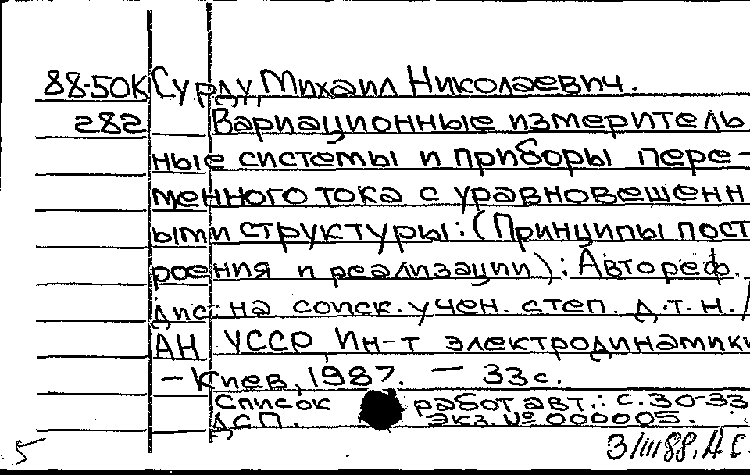 88-50К Сурду, Михаил Николаевич.
282 Вариационные измеритель
ные системы и приборы пере-
менного тока с уравновешенн
ыми структуры: (Принципы пост
роения и реализации): Автореф.
дис. на соиск. учен. степ. д.т.н. /
АН УССР, Ин-т электродинамики
- Киев, 1987. - 33 с.
Список работ авт.: с. 30-33
ДСП. экз. № 000005.
5 3/III 88. АС